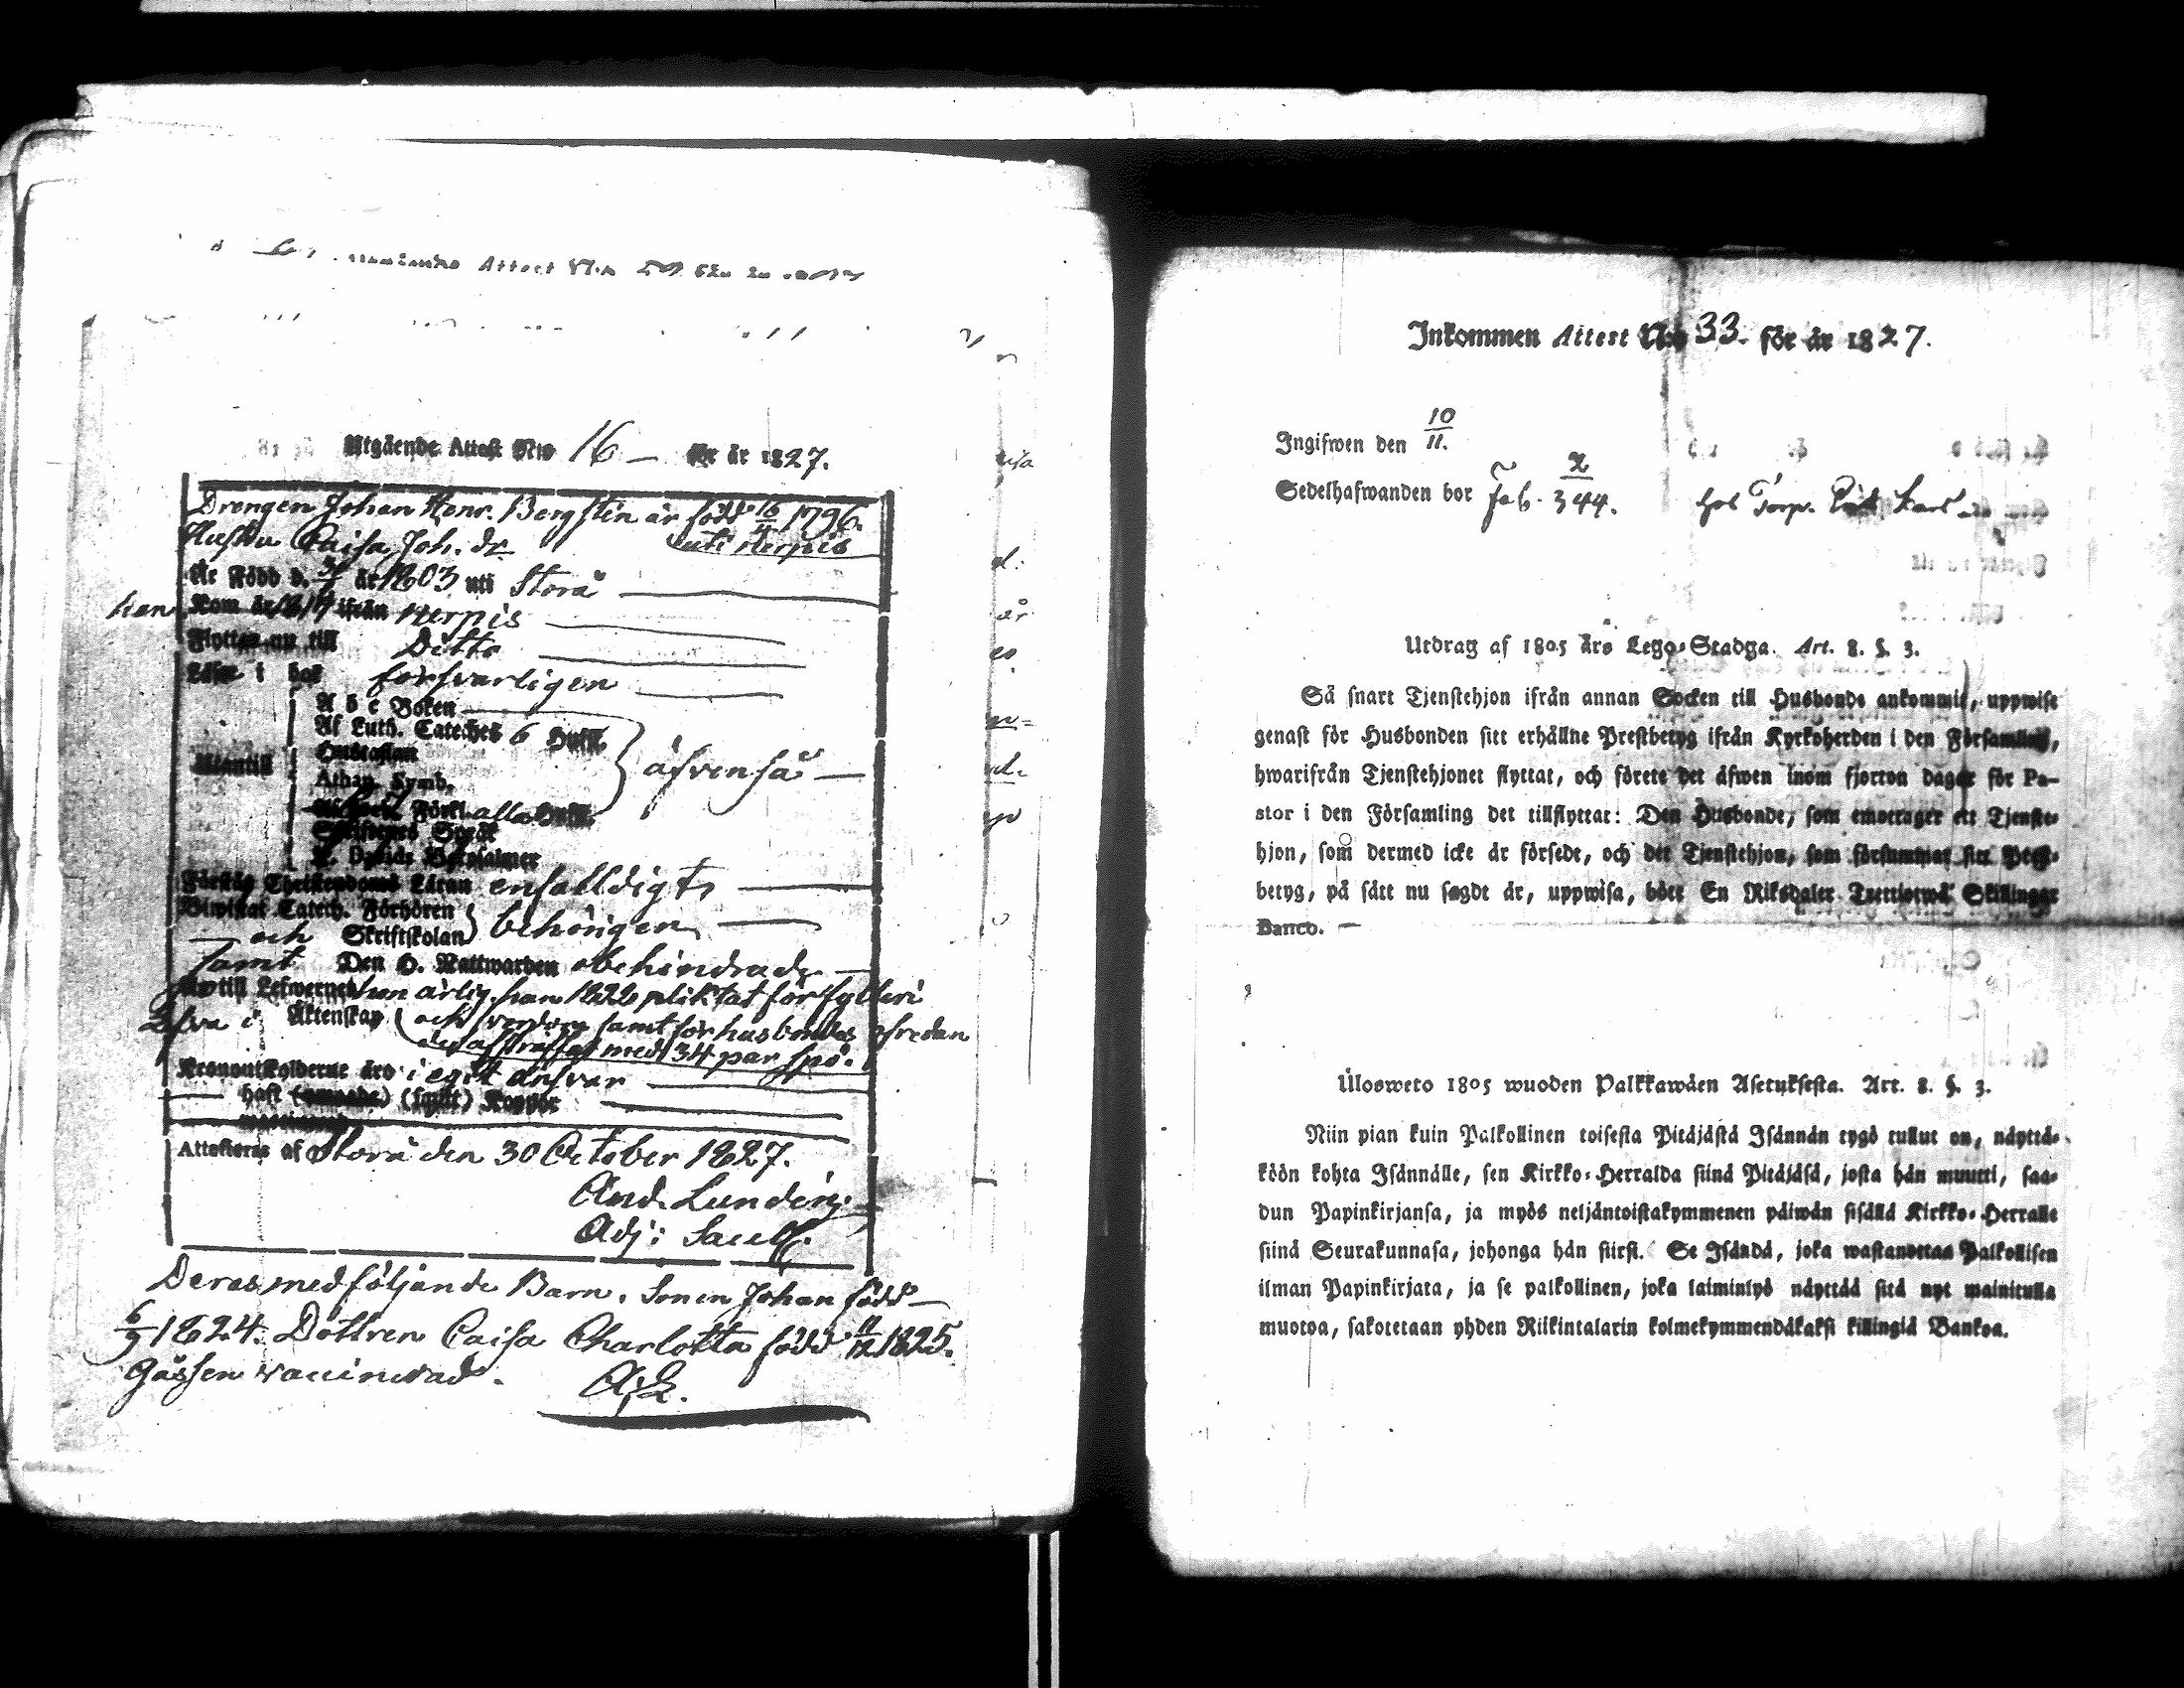 Utgående Attest N:o 16 — för år 1827.
Drengen Johan Henr. Bergsten är född 16/4 1796.
Hustru Caisa Joh. dr uti Nerpis
Är Född d. år 1803 uti Storå
han Kom år 1817 ifrån Nerpis
Flyttar nu till Ditto
Läser i bok försvarligen
A b c Boken
Af Luth. Cateches 6 Hufst.
Hustaflan
Utantill äfvenså
Athan. Symb.
Förkl. alla Hufst.
Skriftenes Språk
K. Davids Botpsalmer
Förstår Christendoms Läran enfalldigt,
Biwistat Catech. Förhören
och Skriftskolan behörigen
samt Den H. Nattwarden obehindrade
till Lefwernet hon ärlig, han 1822 pliktat för fylleri
Lefva i Äktenskap och samt för husbondes ofredan
afstraffat med 34 par spö.
Kronoutskylderne äro i eget ansvar
haft (smitt) Koppor
Attesteras af Storå den 30 October 1827.
And. Lunding
Adj:
Deras medföljande Barn. Sonen Johan född
6/9 1824. Dottren Caisa Charlotta född 11/12 1825.
Gåssen vaccinerad.
A. L.
Inkommen Attest N:o 33. för år 1827.
Ingifwen den 10/11.
Sedelhafwanden bor Fab. 344. hos Torp.
Utdrag af 1805 års Lego-Stadga. Art. 8. §. 3.
Så snart Tjenstehjon ifrån annan Socken till Husbonde ankommit, uppwise
genast för Husbonden sitt erhållne Prestbetyg ifrån Kyrkoherden i den Församling,
hwarifrån Tjenstehjonet flyttat, och förete det äfwen inom fjorton dagar för Pa-
stor i den Församling det tillflyttat: Den Husbonde, som emottager ett Tjenste-
hjon, som dermed icke är försedt, och det Tjenstehjon, som försummar sitt Prest-
betyg, på sätt nu sagdt är, uppwisa, böte En Riksdaler Trettiotwå Skillingar
Banco. —
Ulosweto 1805 wuoden Palkkawäen Asetuksesta. Art. 8. §. 3.
Niin pian kuin Palkollinen toisesta Pitäjästä Isännän tygö tullut on, näyttä-
köön kohta Isännälle, sen Kirkko-Herralda siinä Pitäjäsä, josta hän muutti, saa-
dun Papinkirjansa, ja myös neljäntoistakymmenen päiwän sisällä Kirkko-Herralle
siinä Seurakunnasa, johonga hän siirsi. Se Isändä, joka wastanottaa Palkollisen
ilman Papinkirjata, ja se palkollinen, joka laiminlyö näyttää sitä nyt mainitulla
muotoa, sakotetaan yhden Riikintalarin kolmekymmendäkaksi killingiä Bankoa.